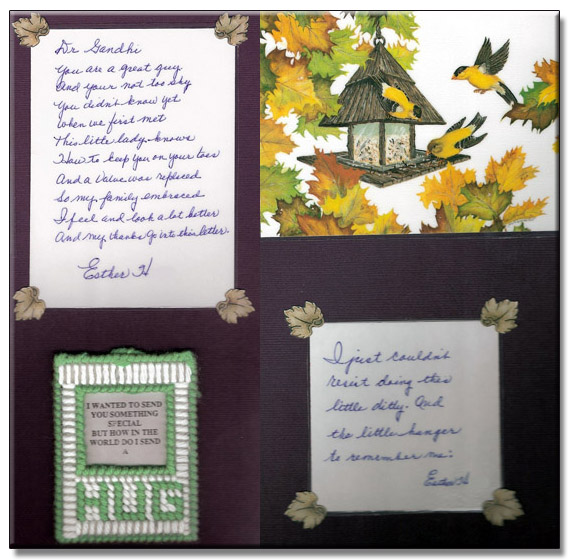 Dr Gandhi
You are a great guy
And your not too shy
You didn't know yet
when we first met
This little lady knows
How to keep you on your toes
And a Value was replaced
So my family embraced
I feel and look a lot better
And my thanks Go into this letter.
Esther H
I WANTED TO SEND
YOU SOMETHING
SPECIAL
BUT HOW IN THE
WORLD DO I SEND
A
HUG
I just couldn't
resist doing this
little ditty. And
the little hanger
to remember me:
Esther H